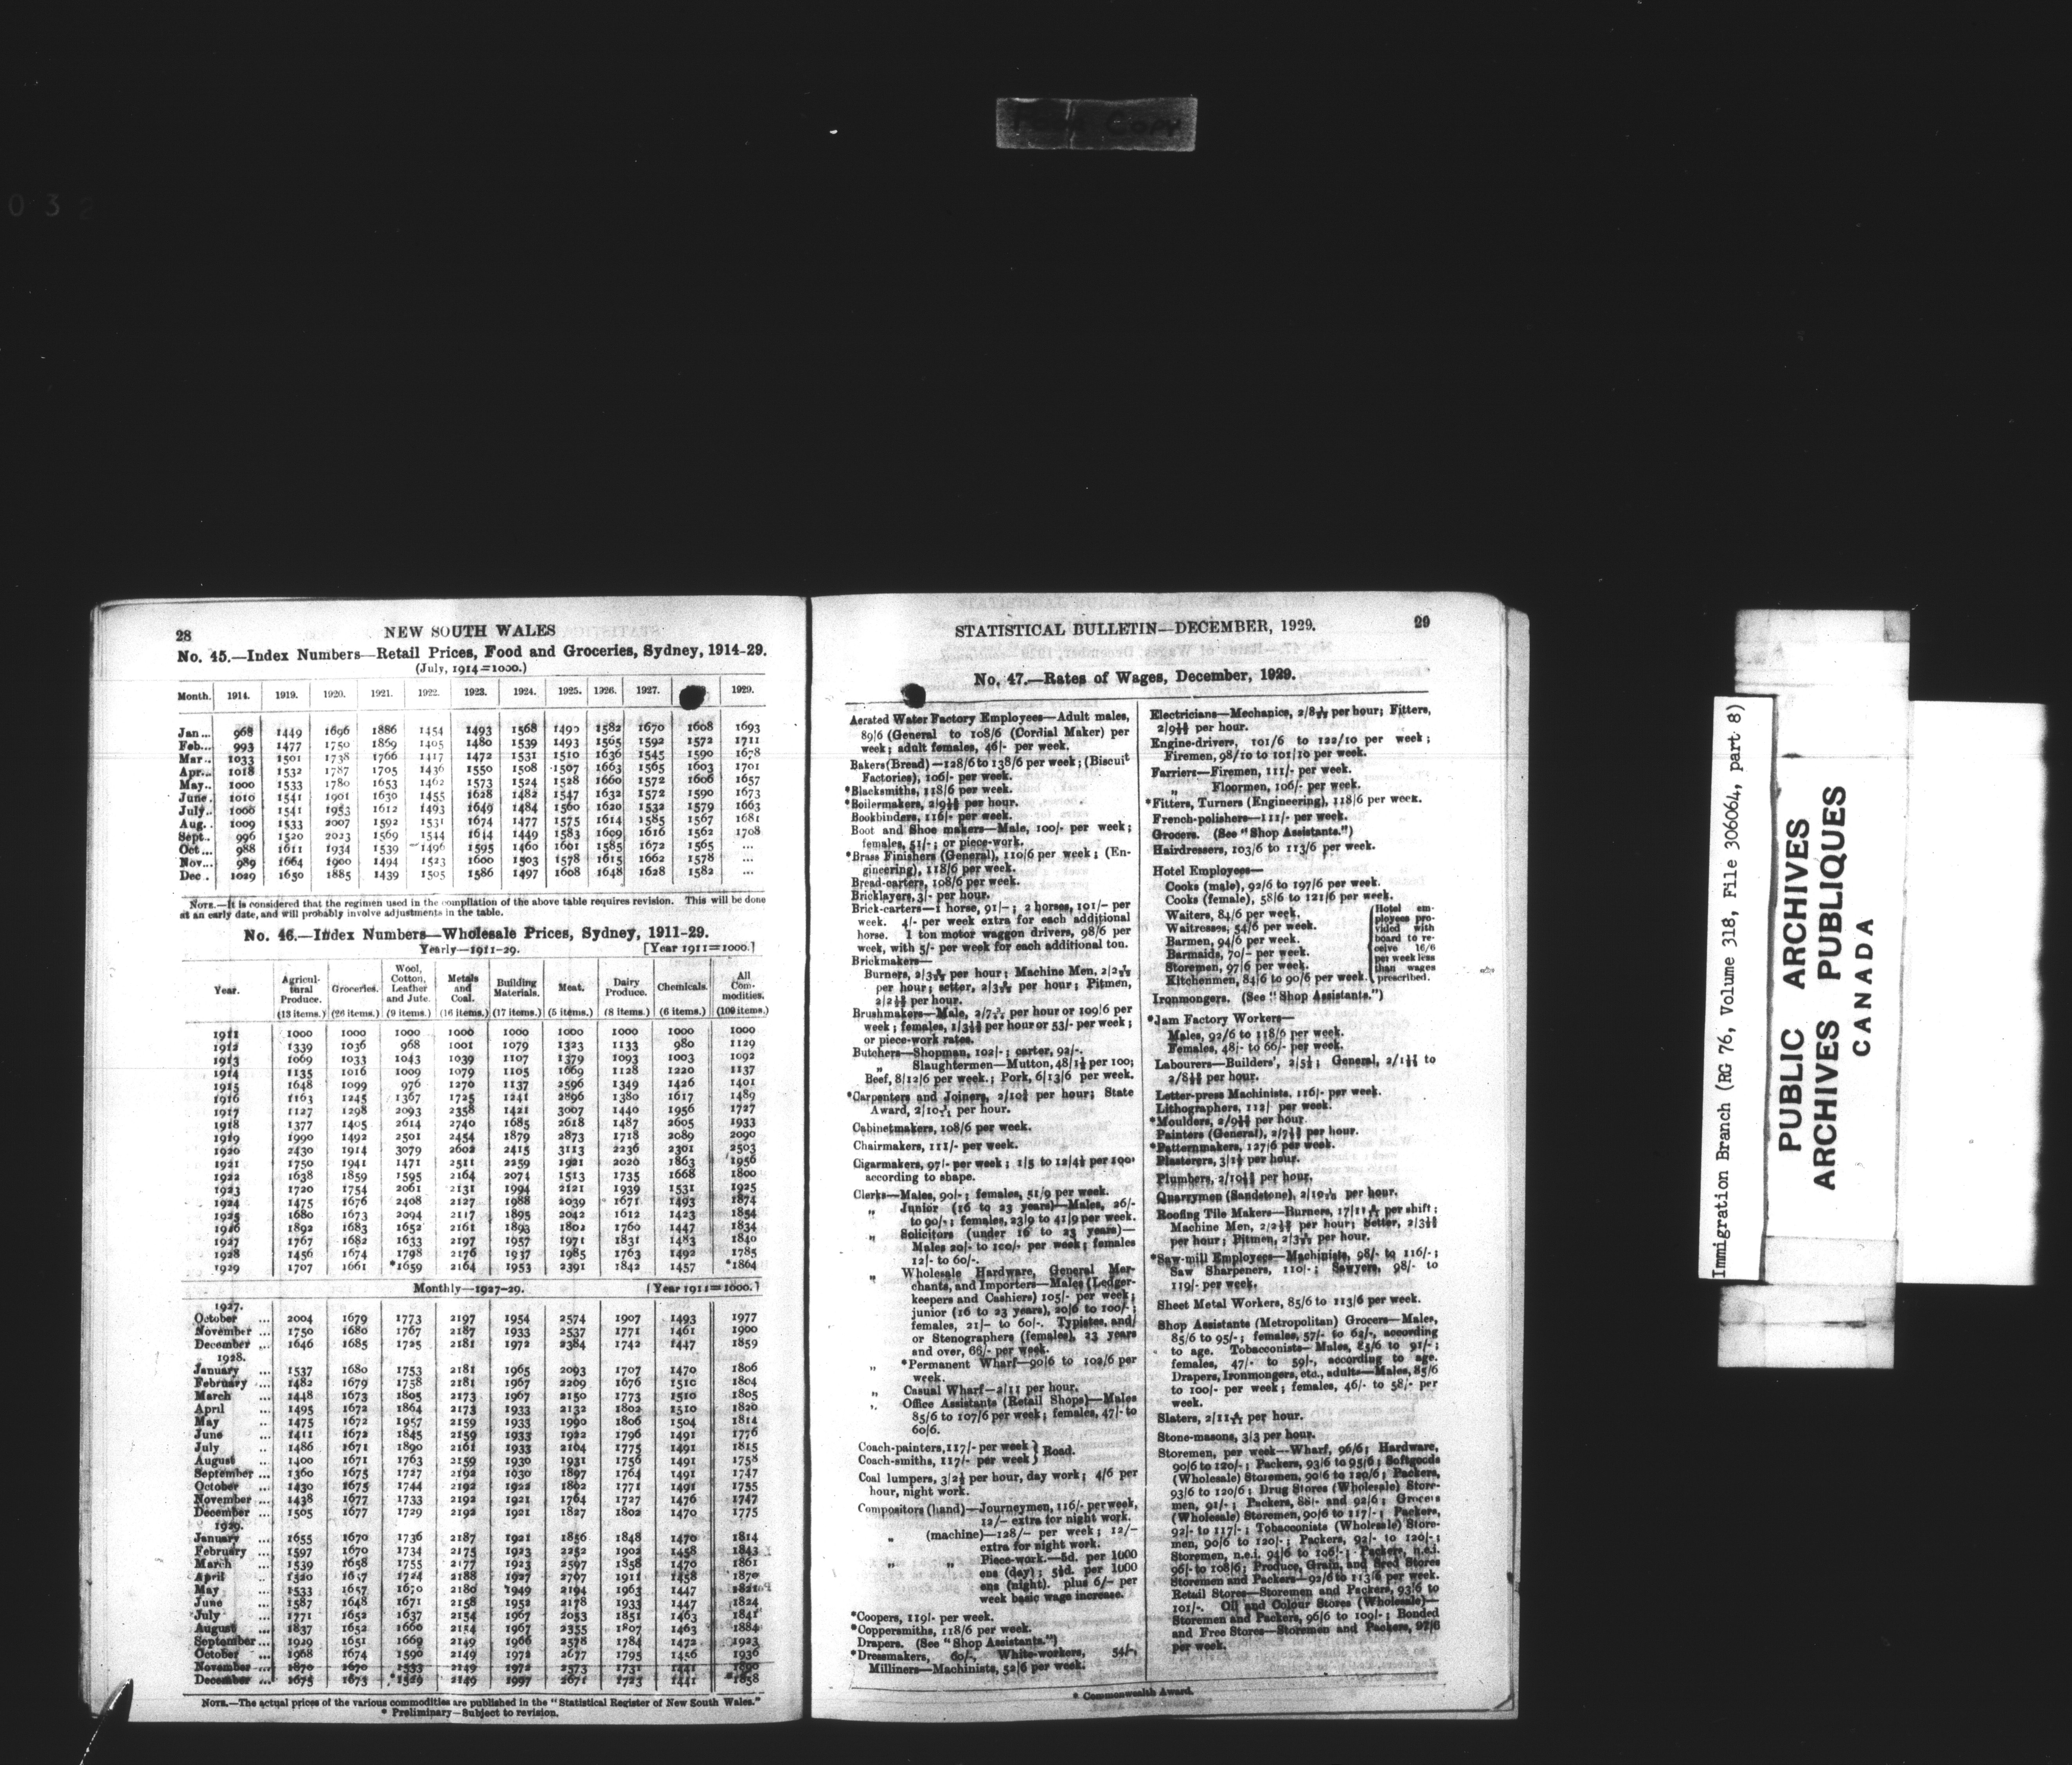 Copy
28
NEW SOUTH WALES
No. 45.—Index Numbers—Retail Prices, Food and Groceries, Sydney, 1914-29.
(July, 1914=1000.)
Month. 1914. 1919. 1920. 1921. 1922. 1923. 1924. 1925. 1926. 1927. 1929.
Jan... 968 1449 1696 1886 1454 1493 1568 1490 1582 1670 1608 1693
Feb... 993 1477 1750 1869 1405 1480 1539 1493 1565 1592 1572 1711
Mar .. 1033 1501 1738 1766 1417 1472 1531 1510 1636 1545 1590 1678
Apr... 1018 1532 1787 1705 1436 1550 1508 1507 1663 1565 1603 1701
May.. 1000 1533 1780 1653 1462 1573 1524 1528 1660 1572 1606 1657
June. 1010 1541 1901 1630 1455 1628 1482 1547 1632 1572 1590 1673
July.. 1000 1541 1953 1612 1493 1649 1484 1560 1620 1532 1579 1663
Aug. . 1009 1533 2007 1592 1531 1674 1477 1575 1614 1585 1567 1681
Sept.. 996 1520 2023 1569 1544 1614 1449 1583 1609 1616 1562 1708
Oct ... 988 1611 1934 1539 1496 1595 1460 1601 1585 1672 1565 ...
Nov... 989 1664 1900 1494 1523 1600 1503 1578 1615 1662 1578 ...
Dec . 1029 1650 1885 1439 1505 1586 1497 1608 1648 1628 1582 ...
NOTE.—It is considered that the regimen used in the compilation of the above table requires revision. This will be done
at an early date, and will probably involve adjustments in the table.
No. 46.—Index Numbers—Wholesale Prices, Sydney, 1911-29.
Yearly—1911-29. [Year 1911=1000.]
Year. Agricultural Produce. Groceries. Wool, Cotton, Leather and Jute. Metals and Coal. Building Materials. Meat. Dairy Produce. Chemicals. All Commodities.
(13 items.) (26 items.) (9 items.) (16 items.) (17 items.) (5 items.) (8 items.) (6 items.) (100 items.)
1911 1000 1000 1000 1000 1000 1000 1000 1000 1000
1912 1339 1036 968 1001 1079 1323 1133 980 1129
1913 1069 1033 1043 1039 1107 1379 1093 1003 1092
1914 1135 1016 1009 1079 1105 1669 1128 1220 1137
1915 1648 1099 976 1270 1137 2596 1349 1426 1401
1916 1163 1245 1367 1725 1241 2896 1380 1617 1489
1917 1127 1298 2093 2358 1421 3007 1440 1956 1727
1918 1377 1405 2614 2740 1685 2618 1487 2605 1933
1919 1990 1492 2501 2454 1879 2873 1718 2089 2090
1920 2430 1914 3079 2602 2415 3113 2236 2301 2503
1921 1750 1941 1471 2511 2259 1921 2020 1863 1956
1922 1638 1859 1595 2164 2074 1513 1735 1668 1800
1923 1720 1754 2061 2131 1994 2121 1939 1531 1925
1924 1475 1676 2408 2127 1988 2039 1671 1493 1874
1925 1680 1673 2094 2117 1895 2042 1612 1423 1854
1926 1892 1683 1652 2161 1893 1802 1760 1447 1834
1927 1767 1682 1633 2197 1957 1971 1831 1483 1840
1928 1456 1674 1798 2176 1937 1985 1763 1492 1785
1929 1707 1661 *1659 2164 1953 2391 1842 1457 *1864
Monthly—1927-29. [Year 1911=1000.]
1927.
October ... 2004 1679 1773 2197 1954 2574 1907 1493 1977
November ... 1750 1680 1767 2187 1933 2537 1771 1461 1900
December ... 1646 1685 1725 2181 1972 2384 1742 1447 1859
1928.
January ... 1537 1680 1753 2181 1965 2093 1707 1470 1806
February ... 1482 1679 1758 2181 1967 2209 1676 1510 1804
March ... 1448 1673 1805 2173 1967 2150 1773 1510 1805
April ... 1495 1672 1864 2173 1933 2132 1802 1510 1820
May ... 1475 1672 1957 2159 1933 1990 1806 1504 1814
June ... 1411 1672 1845 2159 1933 1922 1796 1491 1776
July ... 1486 1671 1890 2161 1933 2104 1775 1491 1815
August ... 1400 1671 1763 2159 1930 1931 1756 1491 1758
September ... 1360 1675 1727 2192 1930 1897 1764 1491 1747
October ... 1430 1675 1744 2192 1922 1802 1771 1491 1755
November ... 1438 1677 1733 2192 1921 1764 1727 1476 1747
December ... 1505 1677 1729 2192 1921 1827 1802 1470 1775
1929.
January ... 1655 1670 1736 2187 1921 1856 1848 1470 1814
February ... 1597 1670 1734 2175 1923 2252 1902 1458 1843
March ... 1539 1658 1755 2177 1923 2597 1858 1470 1861
April ... 1520 1657 1724 2188 1927 2707 1911 1458 1870
May ... 1533 1657 1670 2180 1949 2194 1963 1447
June ... 1587 1648 1671 2158 1952 2178 1933 1447 1824
July ... 1771 1652 1637 2154 1967 2053 1851 1463 1841
August ... 1837 1652 1660 2154 1967 2355 1807 1463 1884
September ... 1929 1651 1669 2149 1966 2578 1784 1472 1923
October ... 1968 1674 1590 2149 1972 2677 1795 1456 1936
November ... 1870 1670 1533 2149 1972 2573 1731 1441 1890
December ... 1675 1673 *1529 2149 1997 2671 1723 1441 *1858
NOTE.—The actual prices of the various commodities are published in the "Statistical Register of New South Wales."
* Preliminary—Subject to revision.
STATISTICAL BULLETIN—DECEMBER, 1929. 29
No. 47.—Rates of Wages, December, 1929.
Aerated Water Factory Employees—Adult males,
89/6 (General to 108/6 (Cordial Maker) per
week; adult females, 46/- per week.
Bakers (Bread)—128/6 to 138/6 per week; (Biscuit
Factories), 106/- per week.
*Blacksmiths, 118/6 per week.
*Boilermakers, per hour.
Bookbinders, 116/- per week.
Boot and Shoe makers—Male, 100/- per week;
females, 51/-; or piece-work.
*Brass Finishers (General), 110/6 per week; (En-
gineering), 118/6 per week.
Bread-carters, 108/6 per week.
Bricklayers, 3/- per hour.
Brick-carters—1 horse, 91/-; 2 horses, 101/- per
week. 4/- per week extra for each additional
horse. 1 ton motor waggon drivers, 98/6 per
week, with 5/- per week for each additional ton.
Brickmakers—
Burners, per hour; Machine Men,
per hour; setter, per hour; Pitmen,
per hour.
Brushmakers—Male, per hour or 109/6 per
week; females, per hour or 53/- per week;
or piece-work rates.
Butchers—Shopman, 102/-; carter, 92/-.
„ Slaughtermen—Mutton, 48/1½ per 100;
Beef, 8/12/6 per week.; Pork, 6/13/6 per week.
*Carpenters and Joiners, per hour; State
Award, per hour.
Cabinetmakers, 108/6 per week.
Chairmakers, 111/- per week.
Cigarmakers, 97/- per week; 1/5 to 12/4½ per 100,
according to shape.
Clerks—Males, 90/-; females, 51/9 per week.
„ Junior (16 to 23 years)—Males, 26/-
to 90/-; females, 23/9 to 41/9 per week.
„ Solicitors (under 16 to 23 years)—
Males 20/- to 100/- per week; females
12/- to 60/-.
„ Wholesale Hardware, General Mer-
chants, and Importers—Males (Ledger-
keepers and Cashiers) 105/- per week;
junior (16 to 23 years), 20/6 to 100/-;
females, 21/- to 60/-. Typistes, and/
or Stenographers (females), 23 years
and over, 66/- per week.
„ *Permanent Wharf—90/6 to 102/6 per
week.
„ Casual Wharf—2/11 per hour.
„ Office Assistants (Retail Shops)—Males
85/6 to 107/6 per week; females, 47/- to
60/6.
Coach-painters, 117/- per week } Road.
Coach-smiths, 117/- per week
Coal lumpers, 3/2½ per hour, day work; 4/6 per
hour, night work.
Compositors (hand)—Journeymen, 116/- per week,
12/- extra for night work.
„ (machine)—128/- per week; 12/-
extra for night work.
„ „ Piece-work.—5d. per 1000
ens (day); per 1000
ens (night). plus 6/- per
week basic wage increase.
*Coopers, 119/- per week.
*Coppersmiths, 118/6 per week.
Drapers. (See "Shop Assistants.")
*Dressmakers, 60/-, White-workers, 54/-,
Milliners—Machinists, 52/6 per week.
Electricians—Mechanics, per hour; Fitters,
per hour.
Engine-drivers, 101/6 to 122/10 per week;
Firemen, 98/10 to 101/10 per week.
Farriers—Firemen, 111/- per week.
„ Floormen, 106/- per week.
*Fitters, Turners (Engineering), 118/6 per week.
French-polishers—111/- per week.
Grocers. (See "Shop Assistants.")
Hairdressers, 103/6 to 113/6 per week.
Hotel Employees—
Cooks (male), 92/6 to 197/6 per week.
Cooks (female), 58/6 to 121/6 per week.
Waiters, 84/6 per week.
Waitresses, 54/6 per week.
Barmen, 94/6 per week.
Barmaids, 70/- per week.
Storemen, 97/6 per week.
Kitchenmen, 84/6 to 90/6 per week.
Hotel em-
ployees pro-
vided with
board to re-
ceive 16/6
per week less
than wages
prescribed.
Ironmongers. (See "Shop Assistants.")
*Jam Factory Workers—
Males, 92/6 to 118/6 per week.
Females, 48/- to 66/- per week.
Labourers—Builders', 2/5½; General, to
per hour.
Letter-press Machinists, 116/- per week.
Lithographers, 112/ per week.
*Moulders, per hour.
Painters (General), per hour.
*Patternmakers, 127/6 per week.
Plasterers, 3/1½ per hour.
Plumbers, per hour.
Quarrymen (Sandstone), per hour.
Roofing Tile Makers—Burners, per shift;
Machine Men, per hour; Setter,
per hour; Pitmen, per hour.
*Saw-mill Employees—Machinists, 98/- to 116/-;
Saw Sharpeners, 110/-; Sawyers, 98/- to
119/- per week.
Sheet Metal Workers, 85/6 to 113/6 per week.
Shop Assistants (Metropolitan) Grocers—Males,
85/6 to 95/-; females, 57/- to 62/-, according
to age. Tobacconists—Males, 85/6 to 91/-;
females, 47/- to 59/-, according to age.
Drapers, Ironmongers, etc., adults—Males, 85/6
to 100/- per week; females, 46/- to 58/- per
week.
Slaters, per hour.
Stone-masons, 3/3 per hour.
Storemen, per week—Wharf, 96/6; Hardware,
90/6 to 120/-; Packers, 93/6 to 95/6; Softgoods
(Wholesale) Storemen, 90/6 to 120/6; Packers,
93/6 to 120/6; Drug Stores (Wholesale) Store-
men, 91/-; Packers, 88/- and 92/6; Grocers
(Wholesale) Storemen, 90/6 to 117/-; Packers,
92/- to 117/-; Tobacconists (Wholesale) Store-
men, 90/6 to 120/-; Packers, 92/- to 120/-;
Storemen, n.e.i. 94/6 to 106/-; Packers, n.e.i.
96/- to 108/6; Produce, Grain, and Seed Stores
Storemen and Packers—92/6 to 113/6 per week.
Retail Stores—Storemen and Packers, 93/6 to
101/-. Oil and Colour Stores (Wholesale)—
Storemen and Packers, 96/6 to 109/-; Bonded
and Free Stores—Storemen and Packers, 97/6
per week.
* Commonwealth Award.
Immigration Branch (RG 76, Volume 318, File 306064, part 8)
PUBLIC ARCHIVES
ARCHIVES PUBLIQUES
CANADA